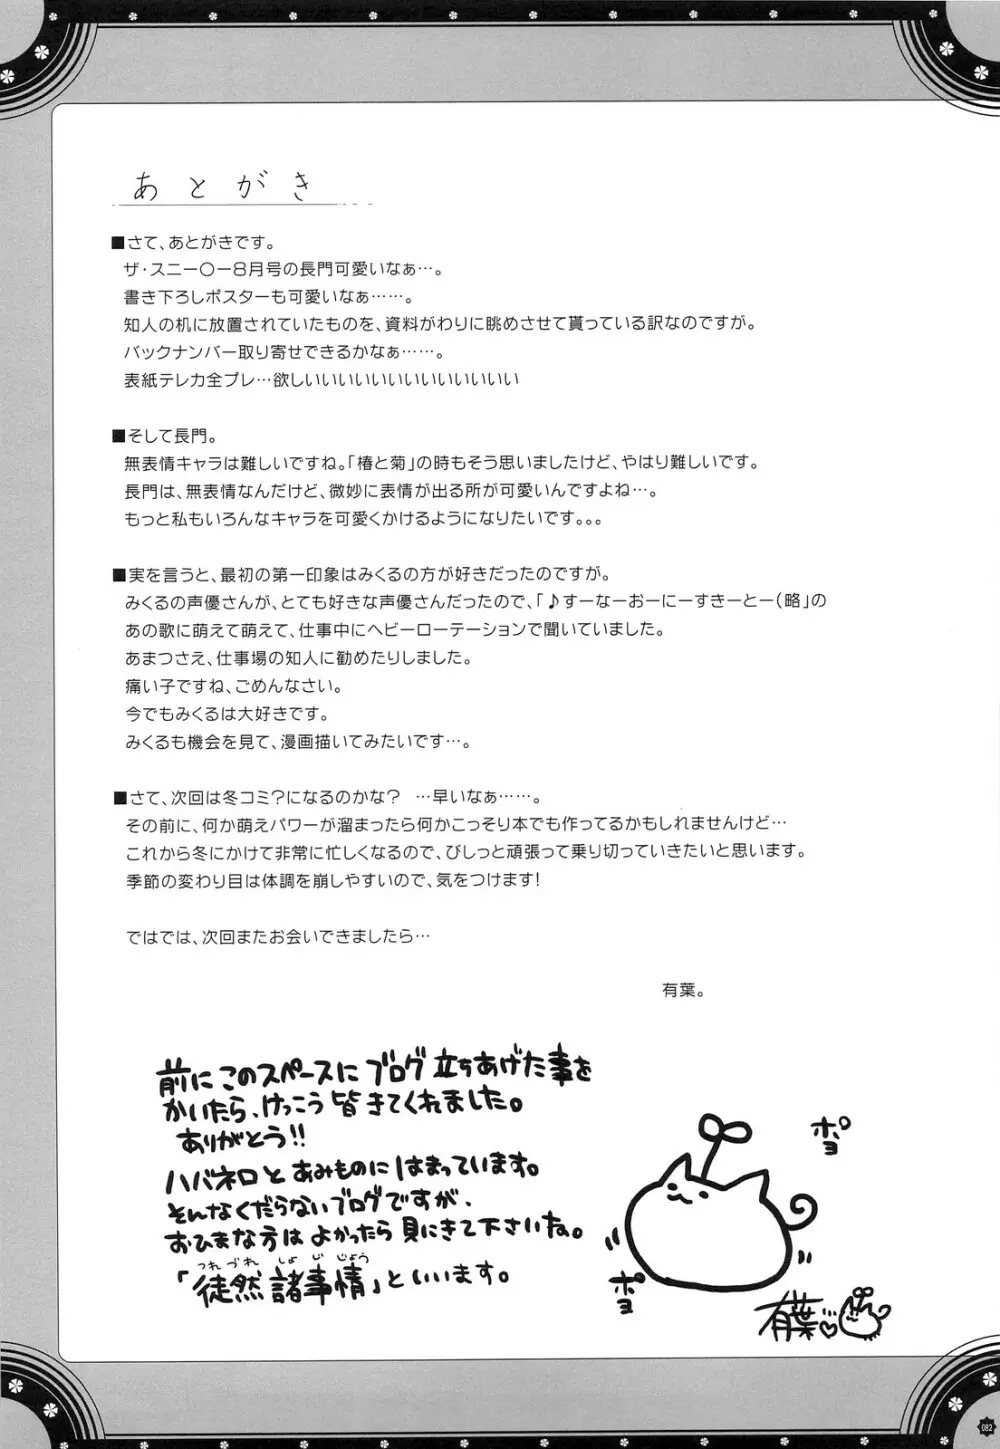 あとがき
■さて、あとがきです。
ザ・スニー〇ー8月号の長門可愛いなぁ…。
書き下ろしポスターも可愛いなぁ……。
知人の机に放置されていたものを、資料がわりに眺めさせて貰っている訳なのですが。
バックナンバー取り寄せできるかなぁ……。
表紙テレカ全プレ…欲しいいいいいいいいいいいいい
■そして長門。
無表情キャラは難しいですね。「椿と菊」の時もそう思いましたけど、やはり難しいです。
長門は、無表情なんだけど、微妙に表情が出る所が可愛いんですよね…。
もっと私もいろんなキャラを可愛くかけるようになりたいです。。。
■実を言うと、最初の第一印象はみくるの方が好きだったのですが。
みくるの声優さんが、とても好きな声優さんだったので、「♪すーなーおーにーすきーとー(略」の
あの歌に萌えて萌えて、仕事中にヘビーローテーションで聞いていました。
あまつさえ、仕事場の知人に勧めたりしました。
痛い子ですね、ごめんなさい。
今でもみくるは大好きです。
みくるも機会を見て、漫画描いてみたいです…。
■さて、次回は冬コミ?になるのかな? …早いなぁ……。
その前に、何か萌えパワーが溜まったら何かこっそり本でも作ってるかもしれませんけど…
これから冬にかけて非常に忙しくなるので、びしっと頑張って乗り切っていきたいと思います。
季節の変わり目は体調を崩しやすいので、気をつけます!
ではでは、次回またお会いできましたら…
有葉。
前にこのスペースにブログ立ちあげた事を
かいたら、けっこう皆きてくれました。
ありがとう!!
ハバネロとあみものにはまっています。
そんなくだらないブログですが、
おひまな方はよかったら見にきて下さいね。
つれづれ しょじじょう
「徒然諸事情」といいます。
ポヨ
ポヨ
有葉
082